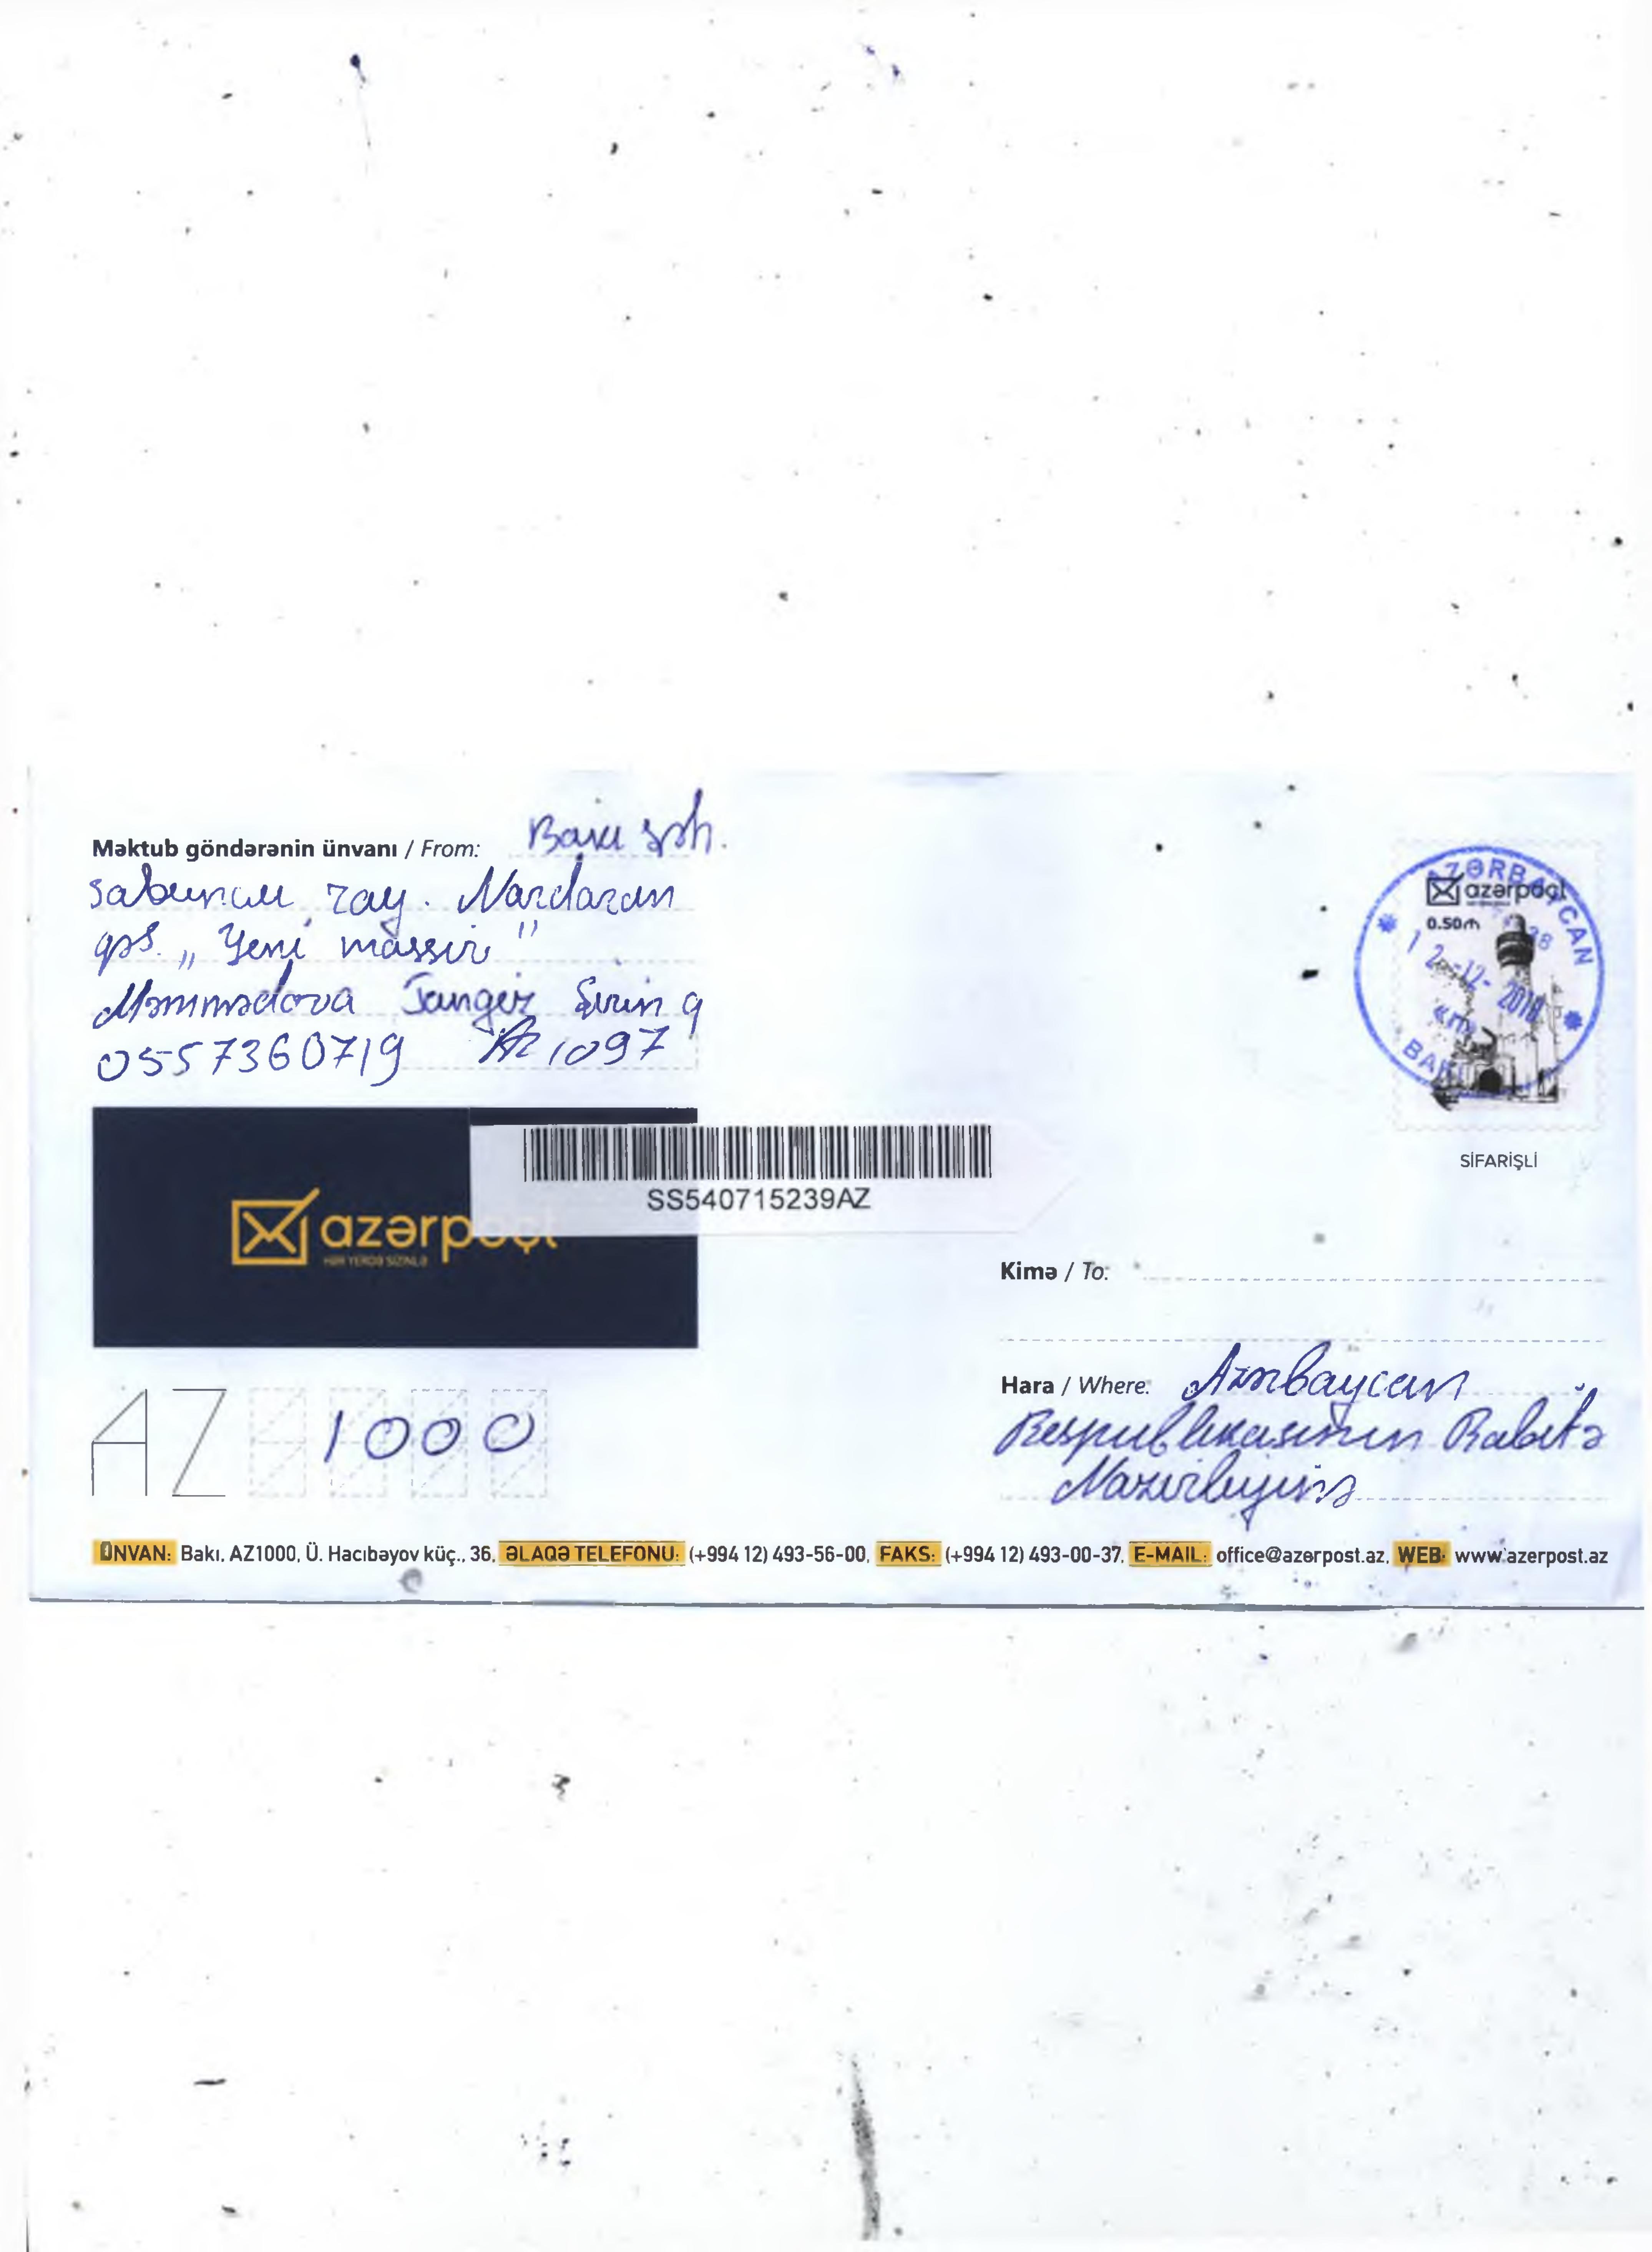 Məktub göndərənin ünvanı / From: Bakı şəh.
Sabunçu ray. Nardaran
qəs. „Yeni massiv"
Məmmədova Şirin q
0557360719 AZ 1097
AZƏRBAYCAN
azərpoçt
0.50₼
12-12-2018
BAKI
SİFARİŞLİ
SS540715239AZ
azərpoçt
HƏR YERDƏ SİZİNLƏ
Kimə / To:
Hara / Where: Azərbaycan
Respublikasının Rabitə
Nazirliyinə
AZ 1000
ÜNVAN: Bakı, AZ1000, Ü. Hacıbəyov küç., 36, ƏLAQƏ TELEFONU: (+994 12) 493-56-00, FAKS: (+994 12) 493-00-37, E-MAIL: office@azerpost.az, WEB: www.azerpost.az